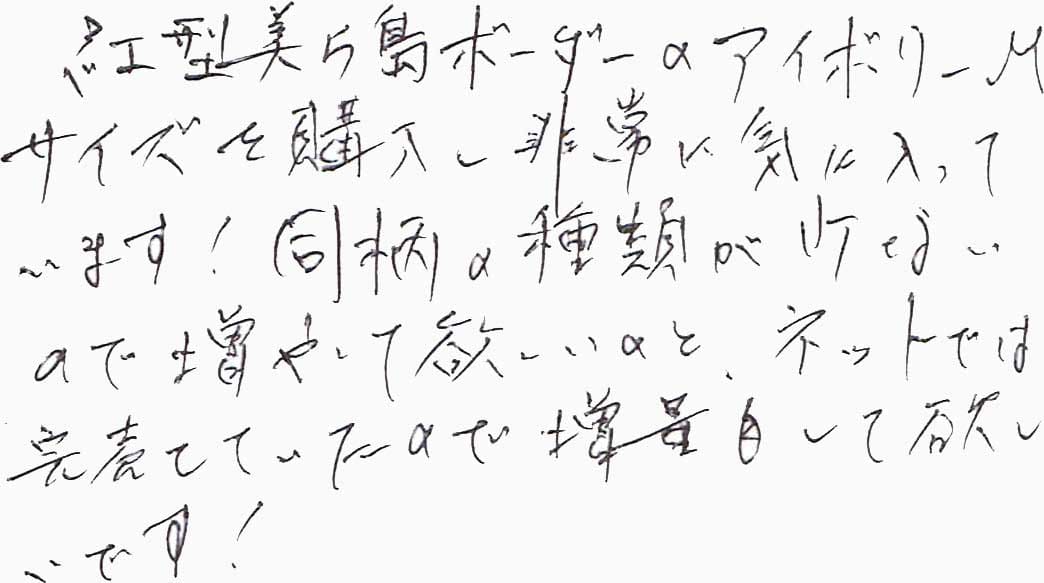 紅型美ら島ボーダーのアイボリーM
サイズを購入し非常に気に入って
います！同柄の種類が少ない
ので増やして欲しいのと、ネットでは
完売してていたので増量もして欲し
いです！